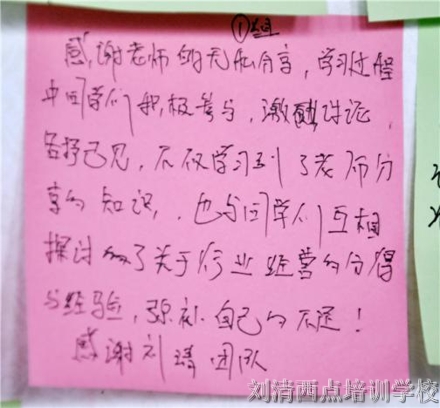 ①组
感谢老师的无私分享，学习过程
中同学们积极参与，激烈讨论，
各抒己见，不仅学习到了老师分
享的知识，也与同学们互相
探讨了关于行业经营的心得
与经验，弥补自己的不足！
感谢刘清团队
刘清西点培训学校